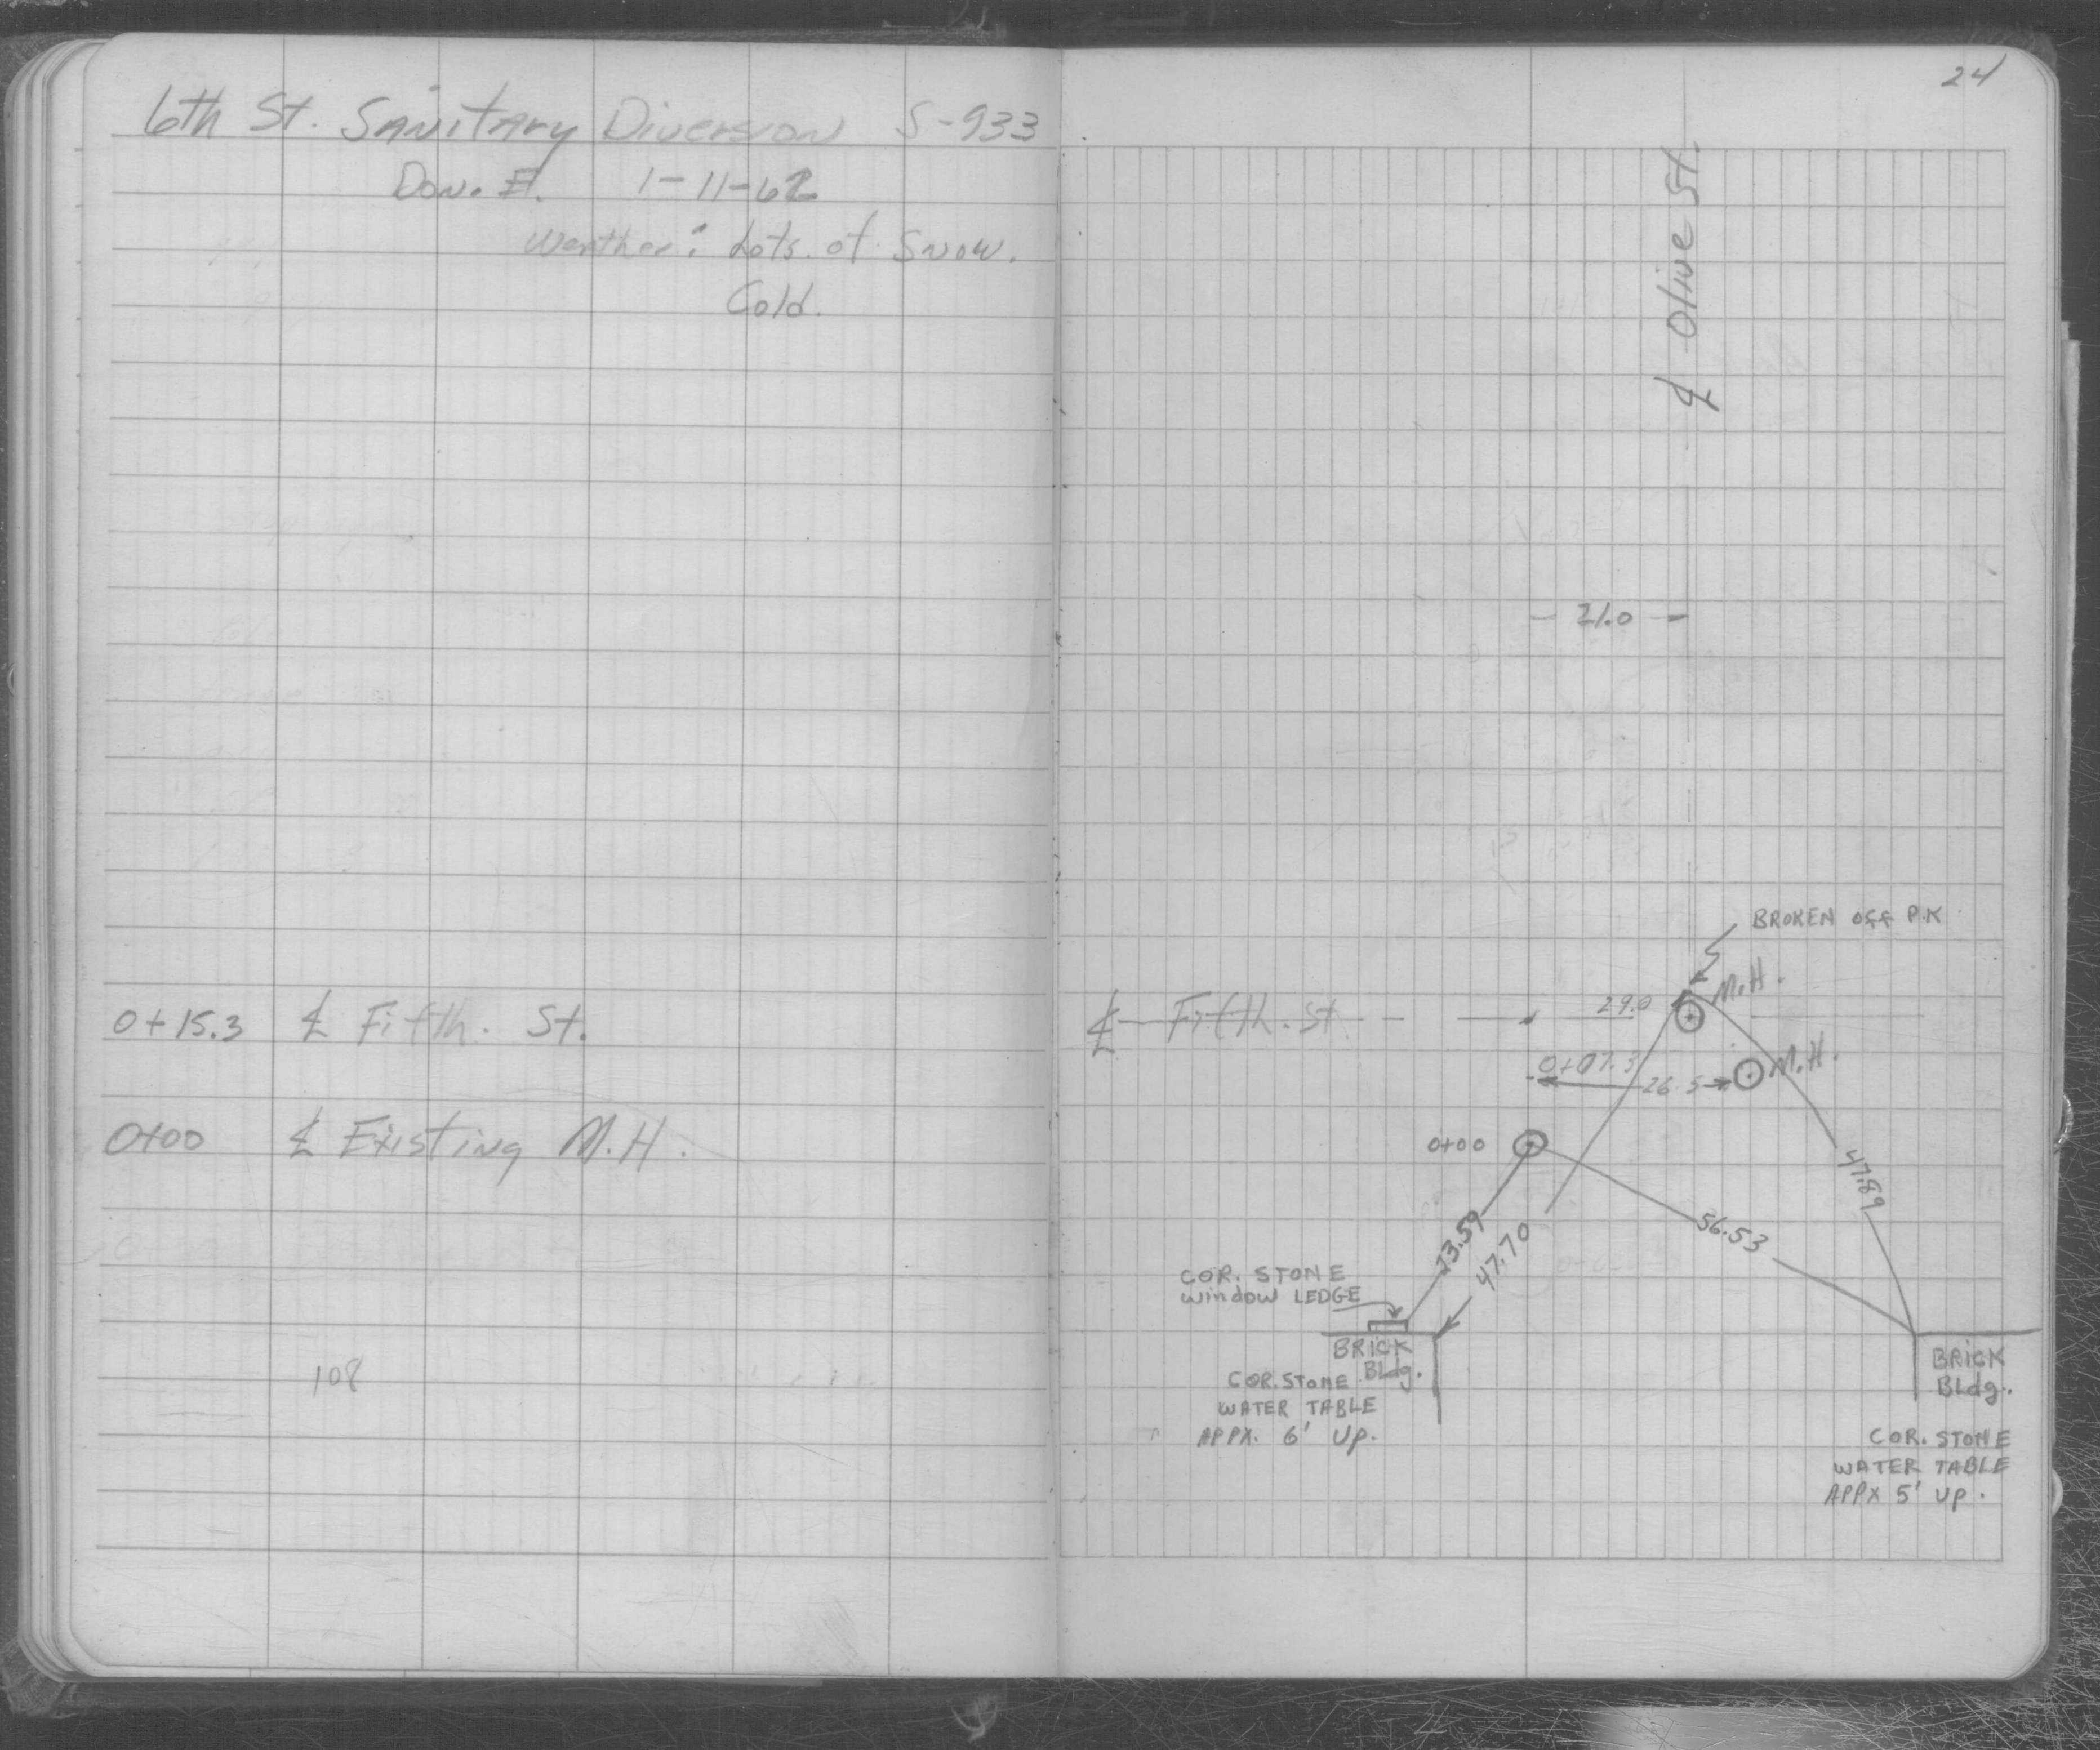 6th St. Sanitary Diversion S-933
Don. E. 1-11-62
Weather: Lots. of Snow.
Cold.
0+15.3 ℄ Fifth. St.
0+00 ℄ Existing M.H.
108
24
℄ Olive St.
21.0
BROKEN OFF P.K
M.H.
℄ Fifth. St.
29.0
0+07.3
26.5
M.H.
0+00
47.89
56.53
47.70
COR. STONE
window LEDGE
BRICK
Bldg.
COR. STONE
WATER TABLE
APPX. 6' UP.
BRICK
Bldg.
COR. STONE
WATER TABLE
APPX 5' UP.